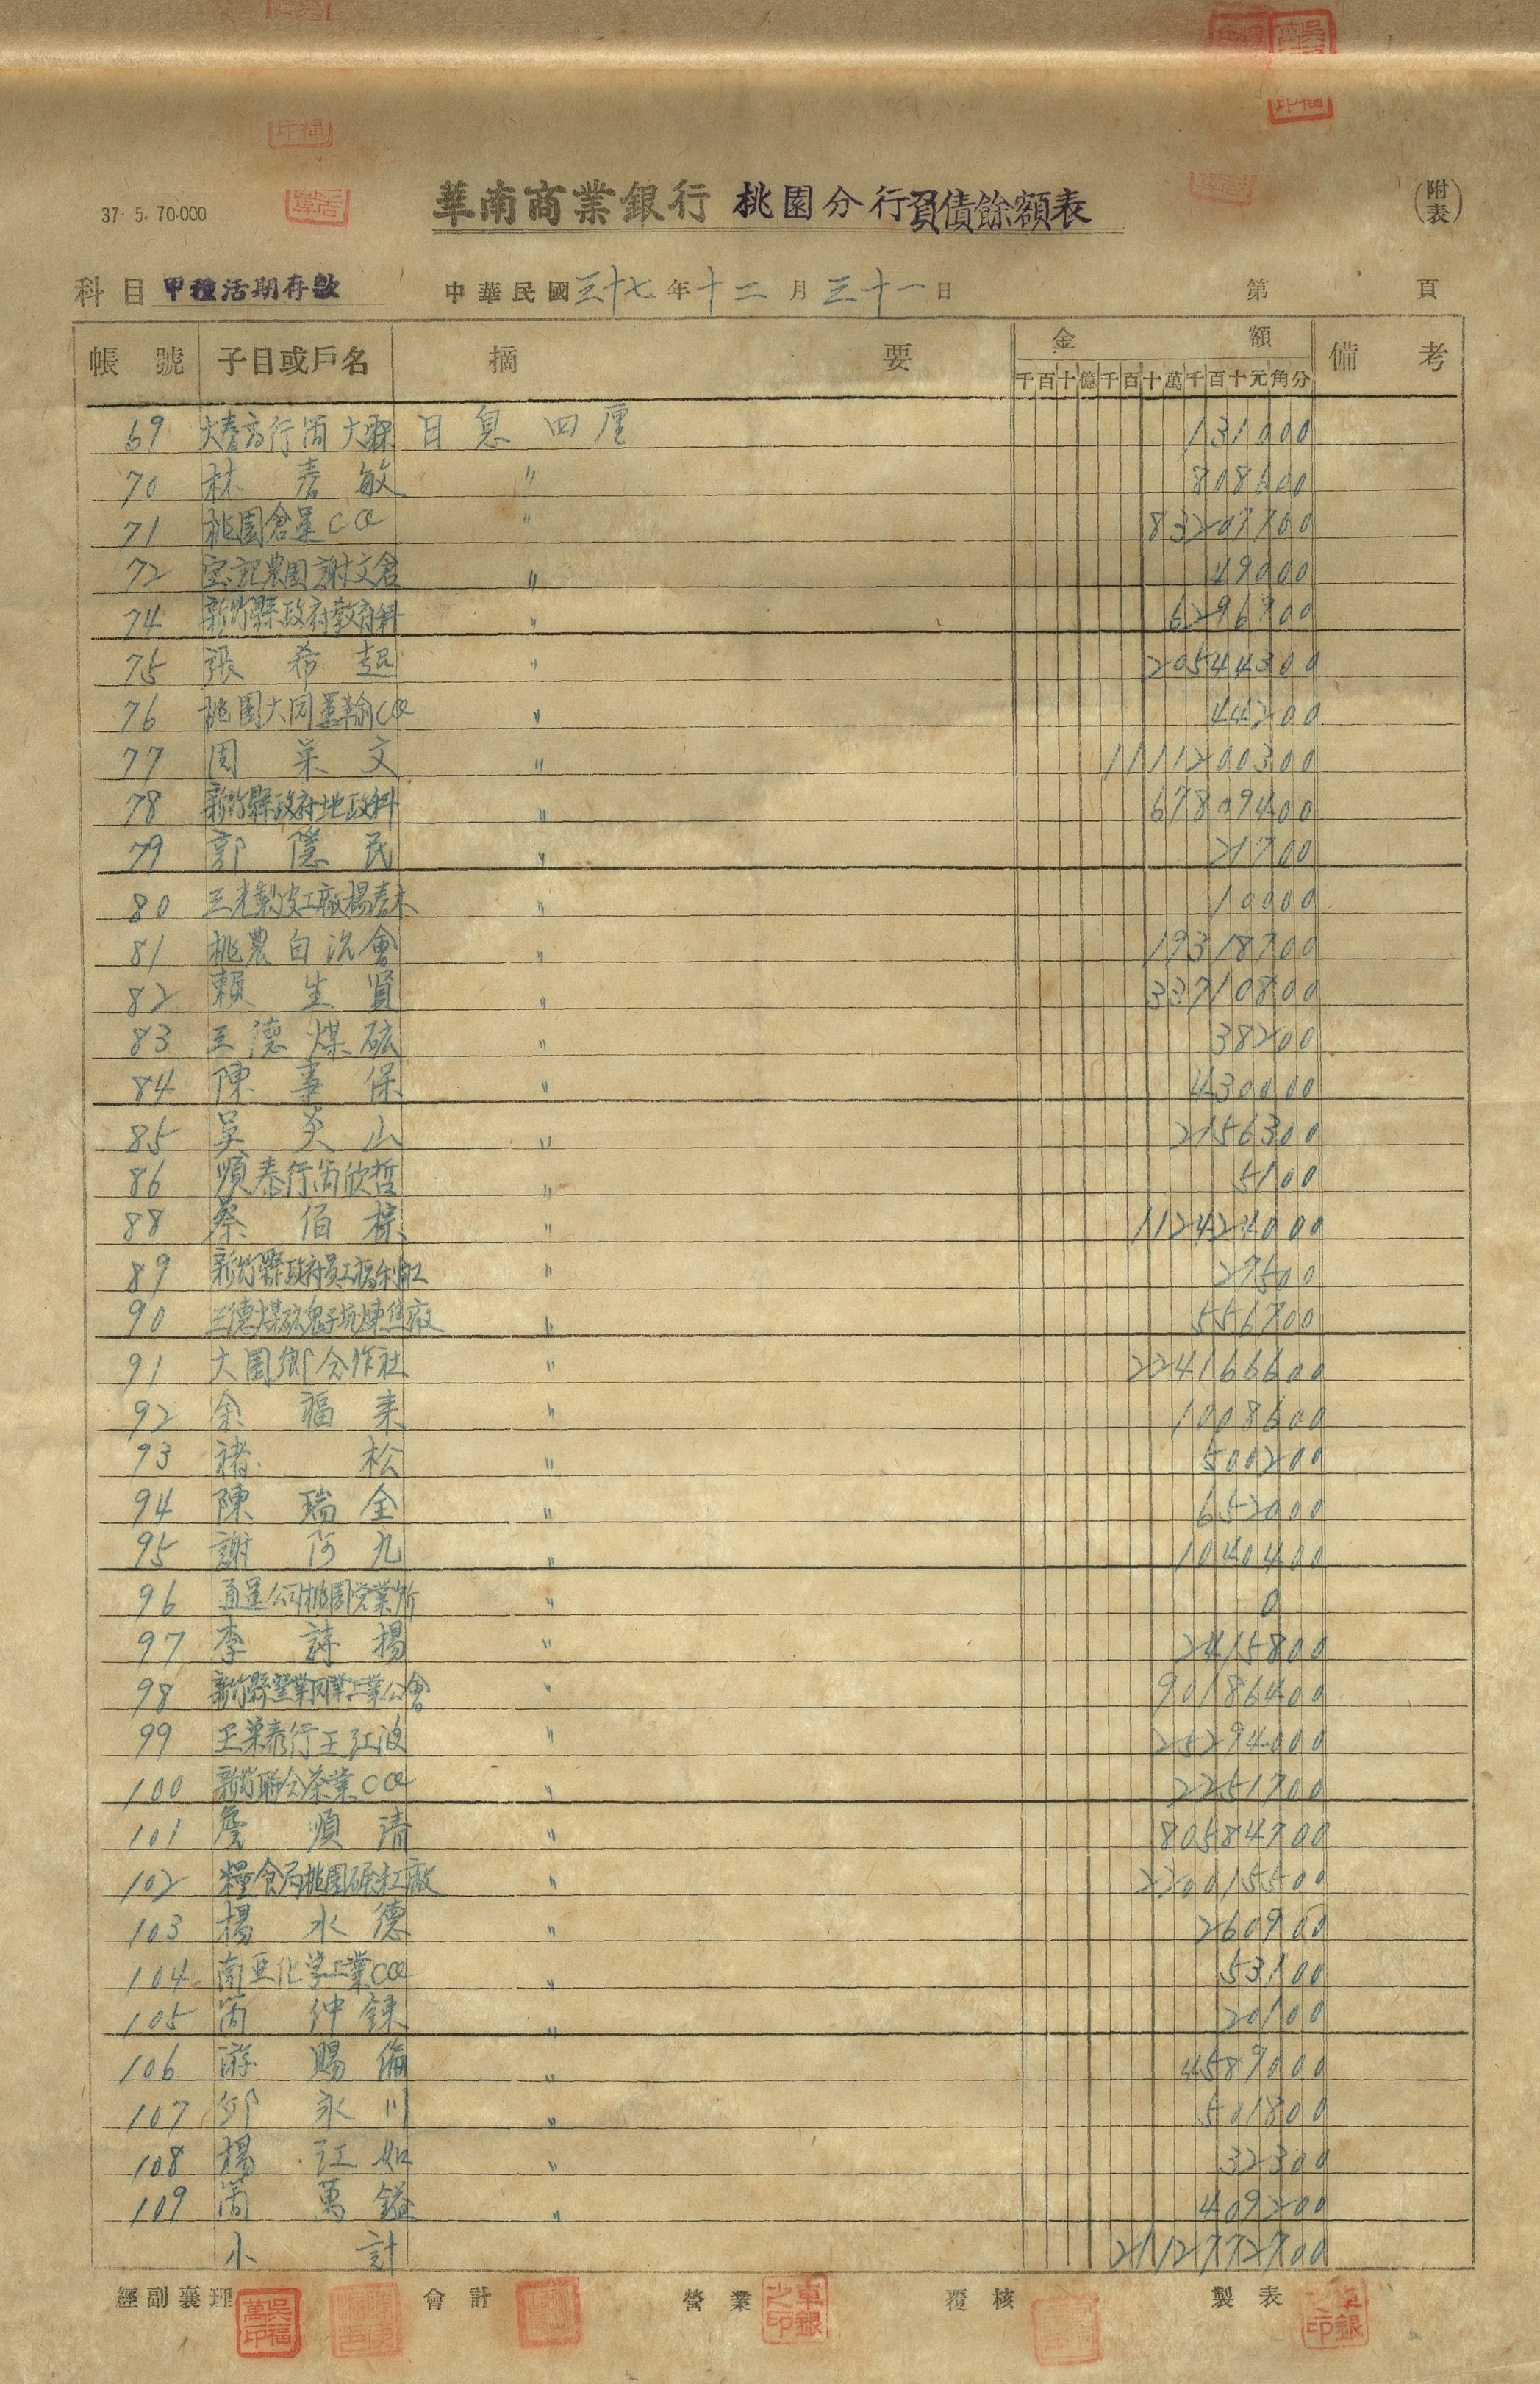 37. 5. 70.000
華南商業銀行 桃園分行負債餘額表
(附表)
科目 甲種活期存款 中華民國三十七年十二月三十一日 第 頁
帳號 子目或戶名 摘要 金額 備考
千百十億千百十萬千百十元角分
69 日息四厘 131000
70 林春敏 〃 808600
71 桃園倉運CO 〃 83207700
72 宝記農園謝文倉 〃 49000
74 新竹縣政府教育科 〃 6296700
75 張希起 〃 20544300
76 桃園大同運輸CO 〃 44200
77 周栄文 〃 1111200300
78 新竹縣政府地政科 〃 67809400
79 郭隱民 〃 21700
80 三光製皮工廠楊春木 〃 10000
81 桃農自治會 〃 19318700
82 賴生賢 〃 33710800
83 三德煤砿 〃 38200
84 陳事保 〃 430000
85 吳炎山 〃 2156300
86 順泰行簡欣哲 〃 5100
88 蔡佰樑 〃 112424000
89 新竹縣政府員工福利社 〃 27500
90 三德煤砿鬼子坑煉焦廠 〃 556700
91 大園鄉合作社 〃 224166600
92 余福来 〃 1008600
93 褚松 〃 500200
94 陳瑞全 〃 652000
95 謝阿九 〃 1040400
96 通運公司桃園営業所 〃 0
97 李詩楊 〃 2415800
98 〃 90186400
99 王栄泰行王江波 〃 25294000
100 新竹聯合茶業CO 〃 2251700
101 詹順清 〃 80584700
102 糧食局桃園碾米工廠 〃 220015500
103 楊水德 〃 260900
104 南亜化学工業CO 〃 53100
105 簡仲銇 〃 20100
106 游賜倫 〃 4589000
107 邱永川 〃 501800
108 楊江如 〃 32300
109 簡萬鎰 〃 409200
小計 2112772700
經副襄理 會計 營業 覆核 製表
吳萬福印